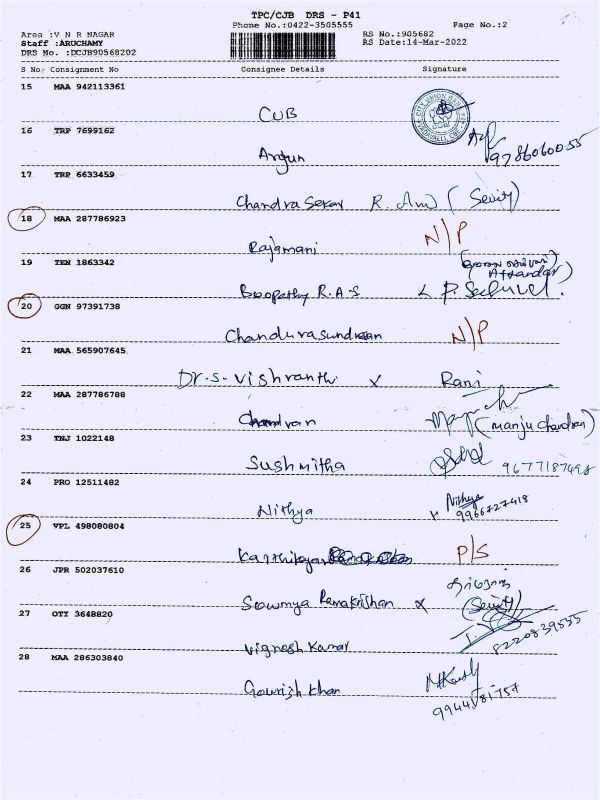 TPC/CJB DRS - P41
Phone No.:0422-3505555 Page No.:2
Area :V N R NAGAR RS No.:905682
Staff :ARUCHAMY RS Date:14-Mar-2022
DRS No. :DCJB90568202
S No. Consignment No Consignee Details Signature
15 MAA 942113361
CUB
CITY UNION BANK
16 TRP 7699162
Arjun 9786060055
17 TRP 6633459
Chandra Sekar R. Anu (Seuity)
18 MAA 287786923
Rajamani N/P
19 TEN 1863342
(Attendar)
Boopathy R.A-S
20 GGN 97391738
Chandurasundraan N/P
21 MAA 565907645
Dr.S.Vishranthi x Rani
22 MAA 287786788
Chandran (Manju Chandran)
23 TNJ 1022148
Sushmitha 9677187498
24 PRO 12511482
Nithya x Nithya
9966727418
25 VPL 498080804
Karthikeyan P/S
26 JPR 502037610
Sowmya Ramakrishan x (Seuity)
27 OTY 3648820
Vignesh Kumar 8220839555
28 MAA 286303840
Gowrish Khan
9944581757